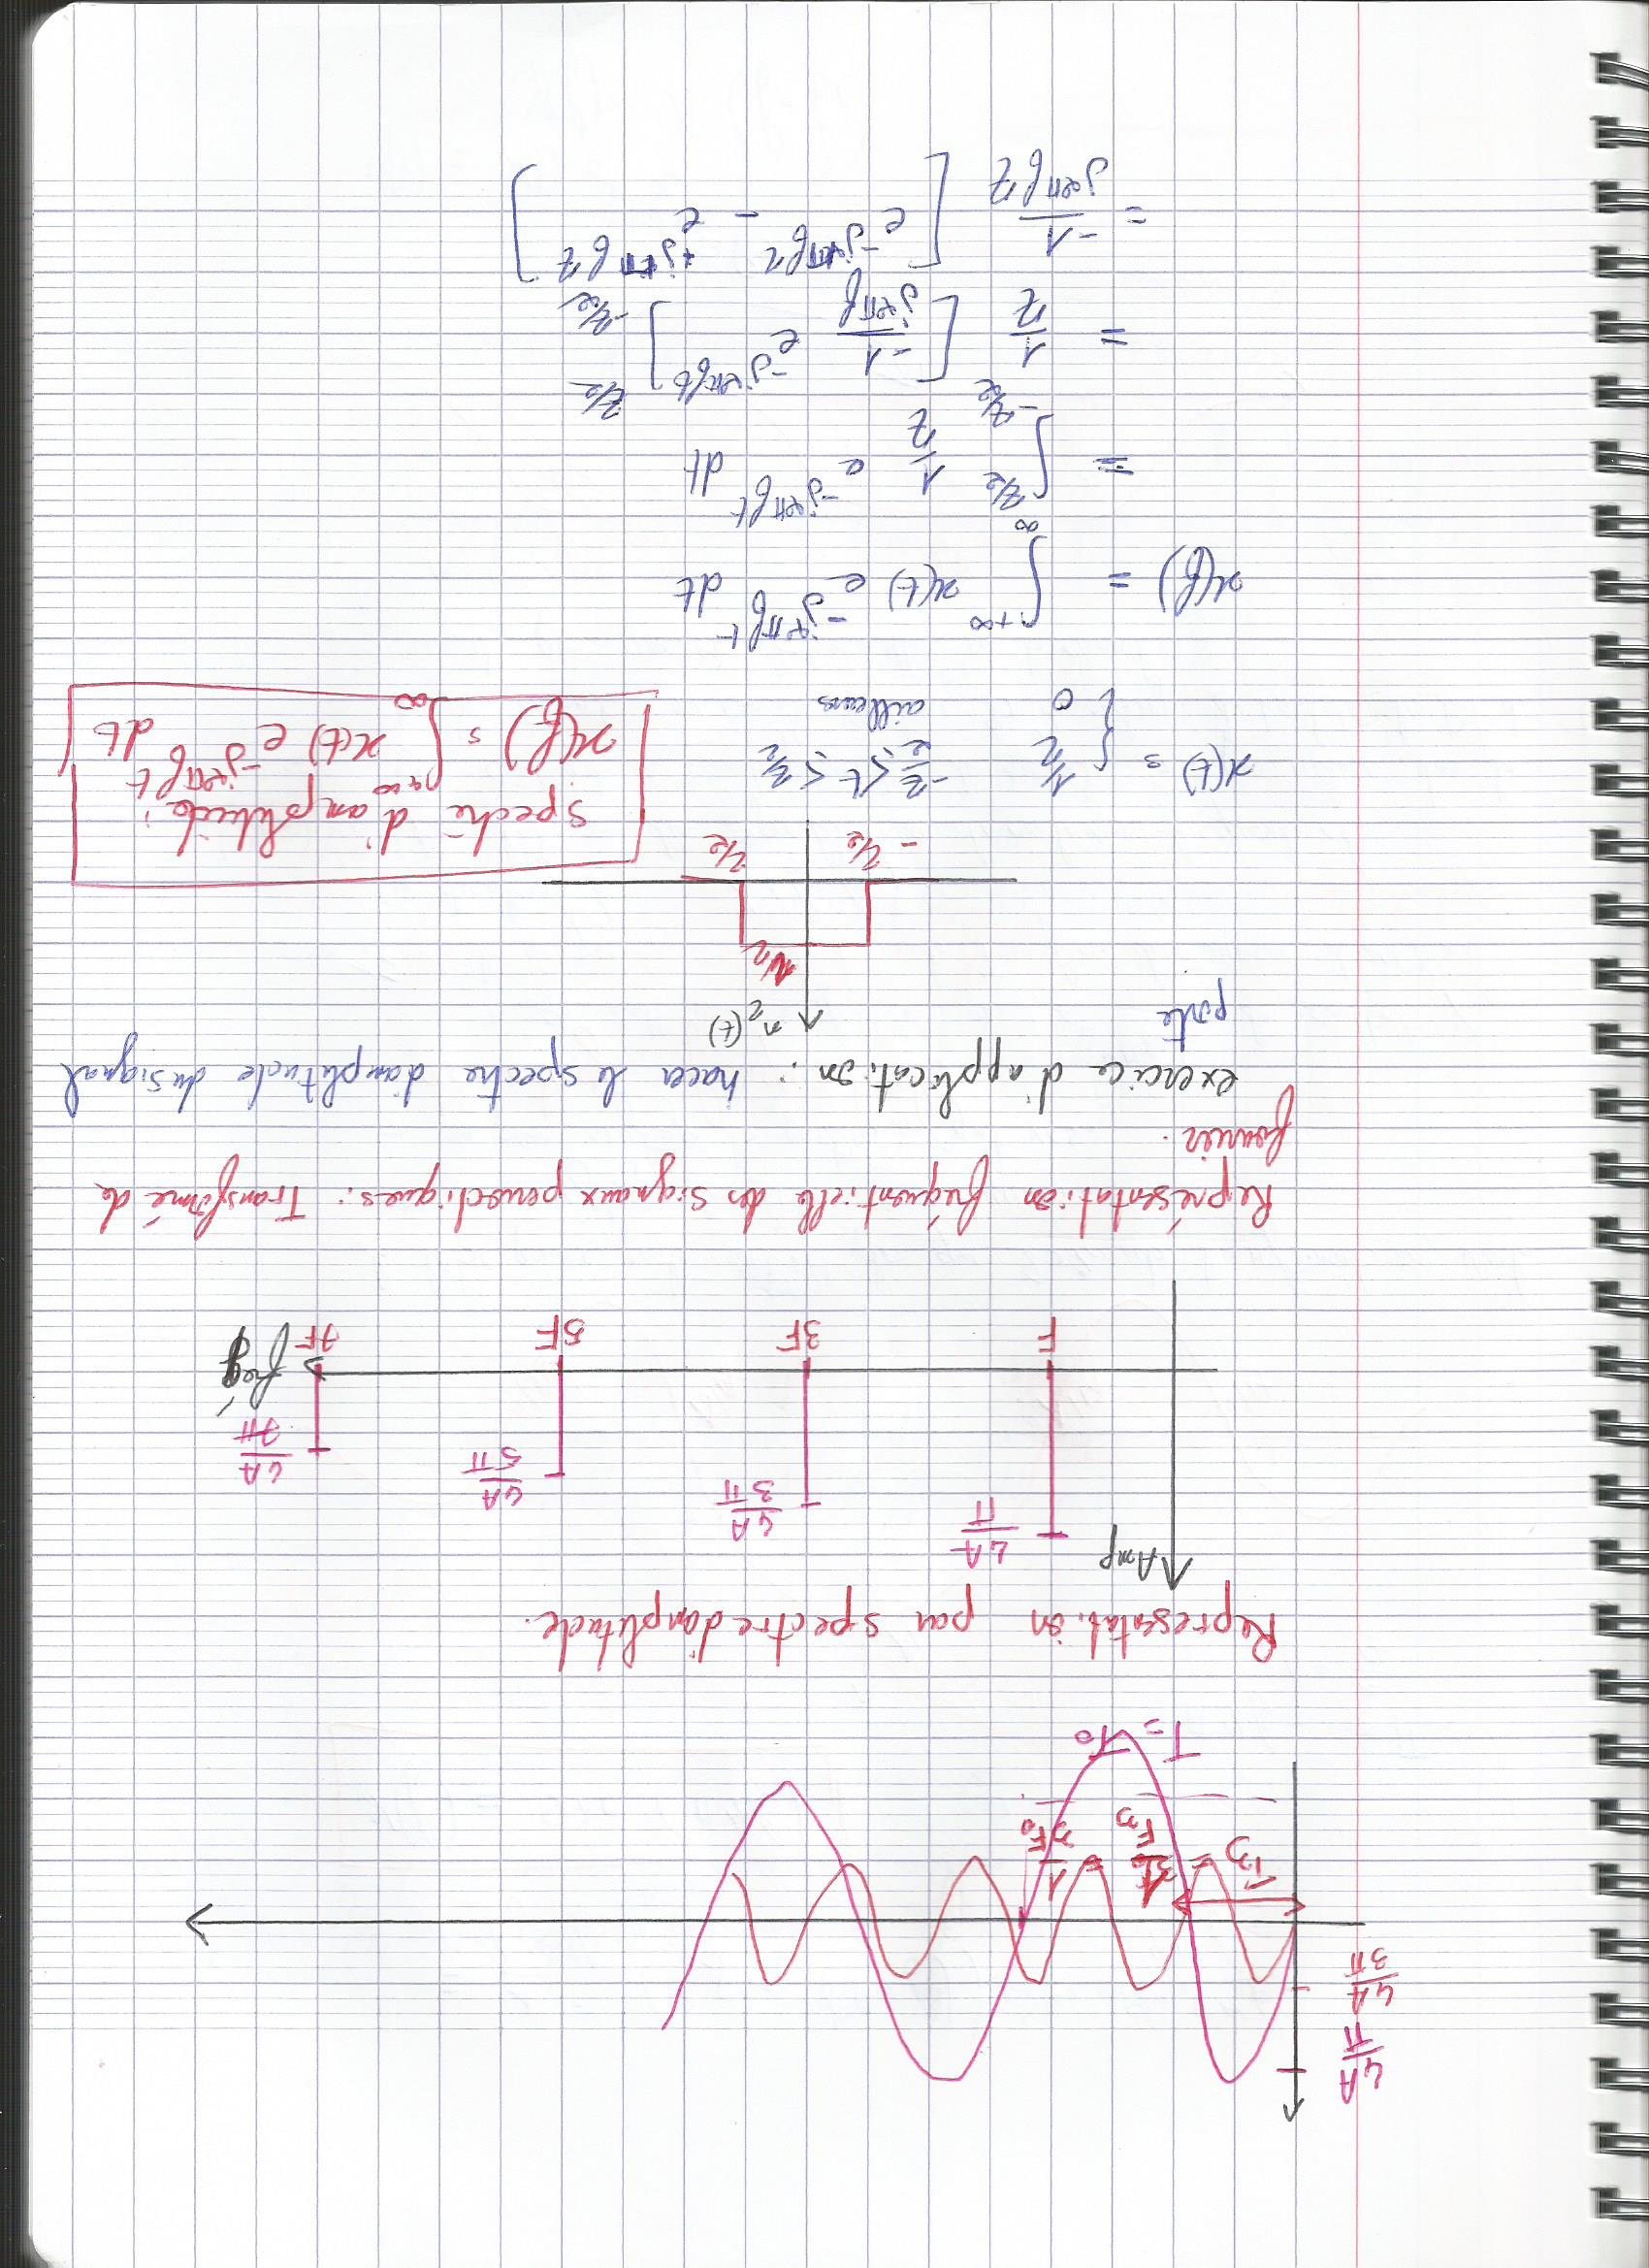 4A/π
4A/3π
T3
1/3F0
F3
1/F0
T = T0
Représentation par spectre d'amplitude.
Amp
4A/π
4A/3π
4A/5π
4A/7π
F 3F 5F 7F
fréq
Représentation fréquentielle des signaux periodiques : Transformé de
fourier.
exercice d'application : tracer le spectre d'amplitude du signal
porte
π_τ(t)
1/τ
-τ/2 τ/2
spectre d'amplitude
x(f) = ∫_∞^+∞ x(t) e^-j2πft dt
x(t) = { 1/τ -τ/2 ≤ t ≤ τ/2
0 ailleurs
x(f) = ∫_∞^+∞ x(t) e^-j2πft dt
= ∫_-τ/2^τ/2 1/τ e^-j2πft dt
= 1/τ [-1/j2πf e^-j2πft]_-τ/2^τ/2
= -1/j2πfτ [e^-jπfτ - e^+jπfτ]